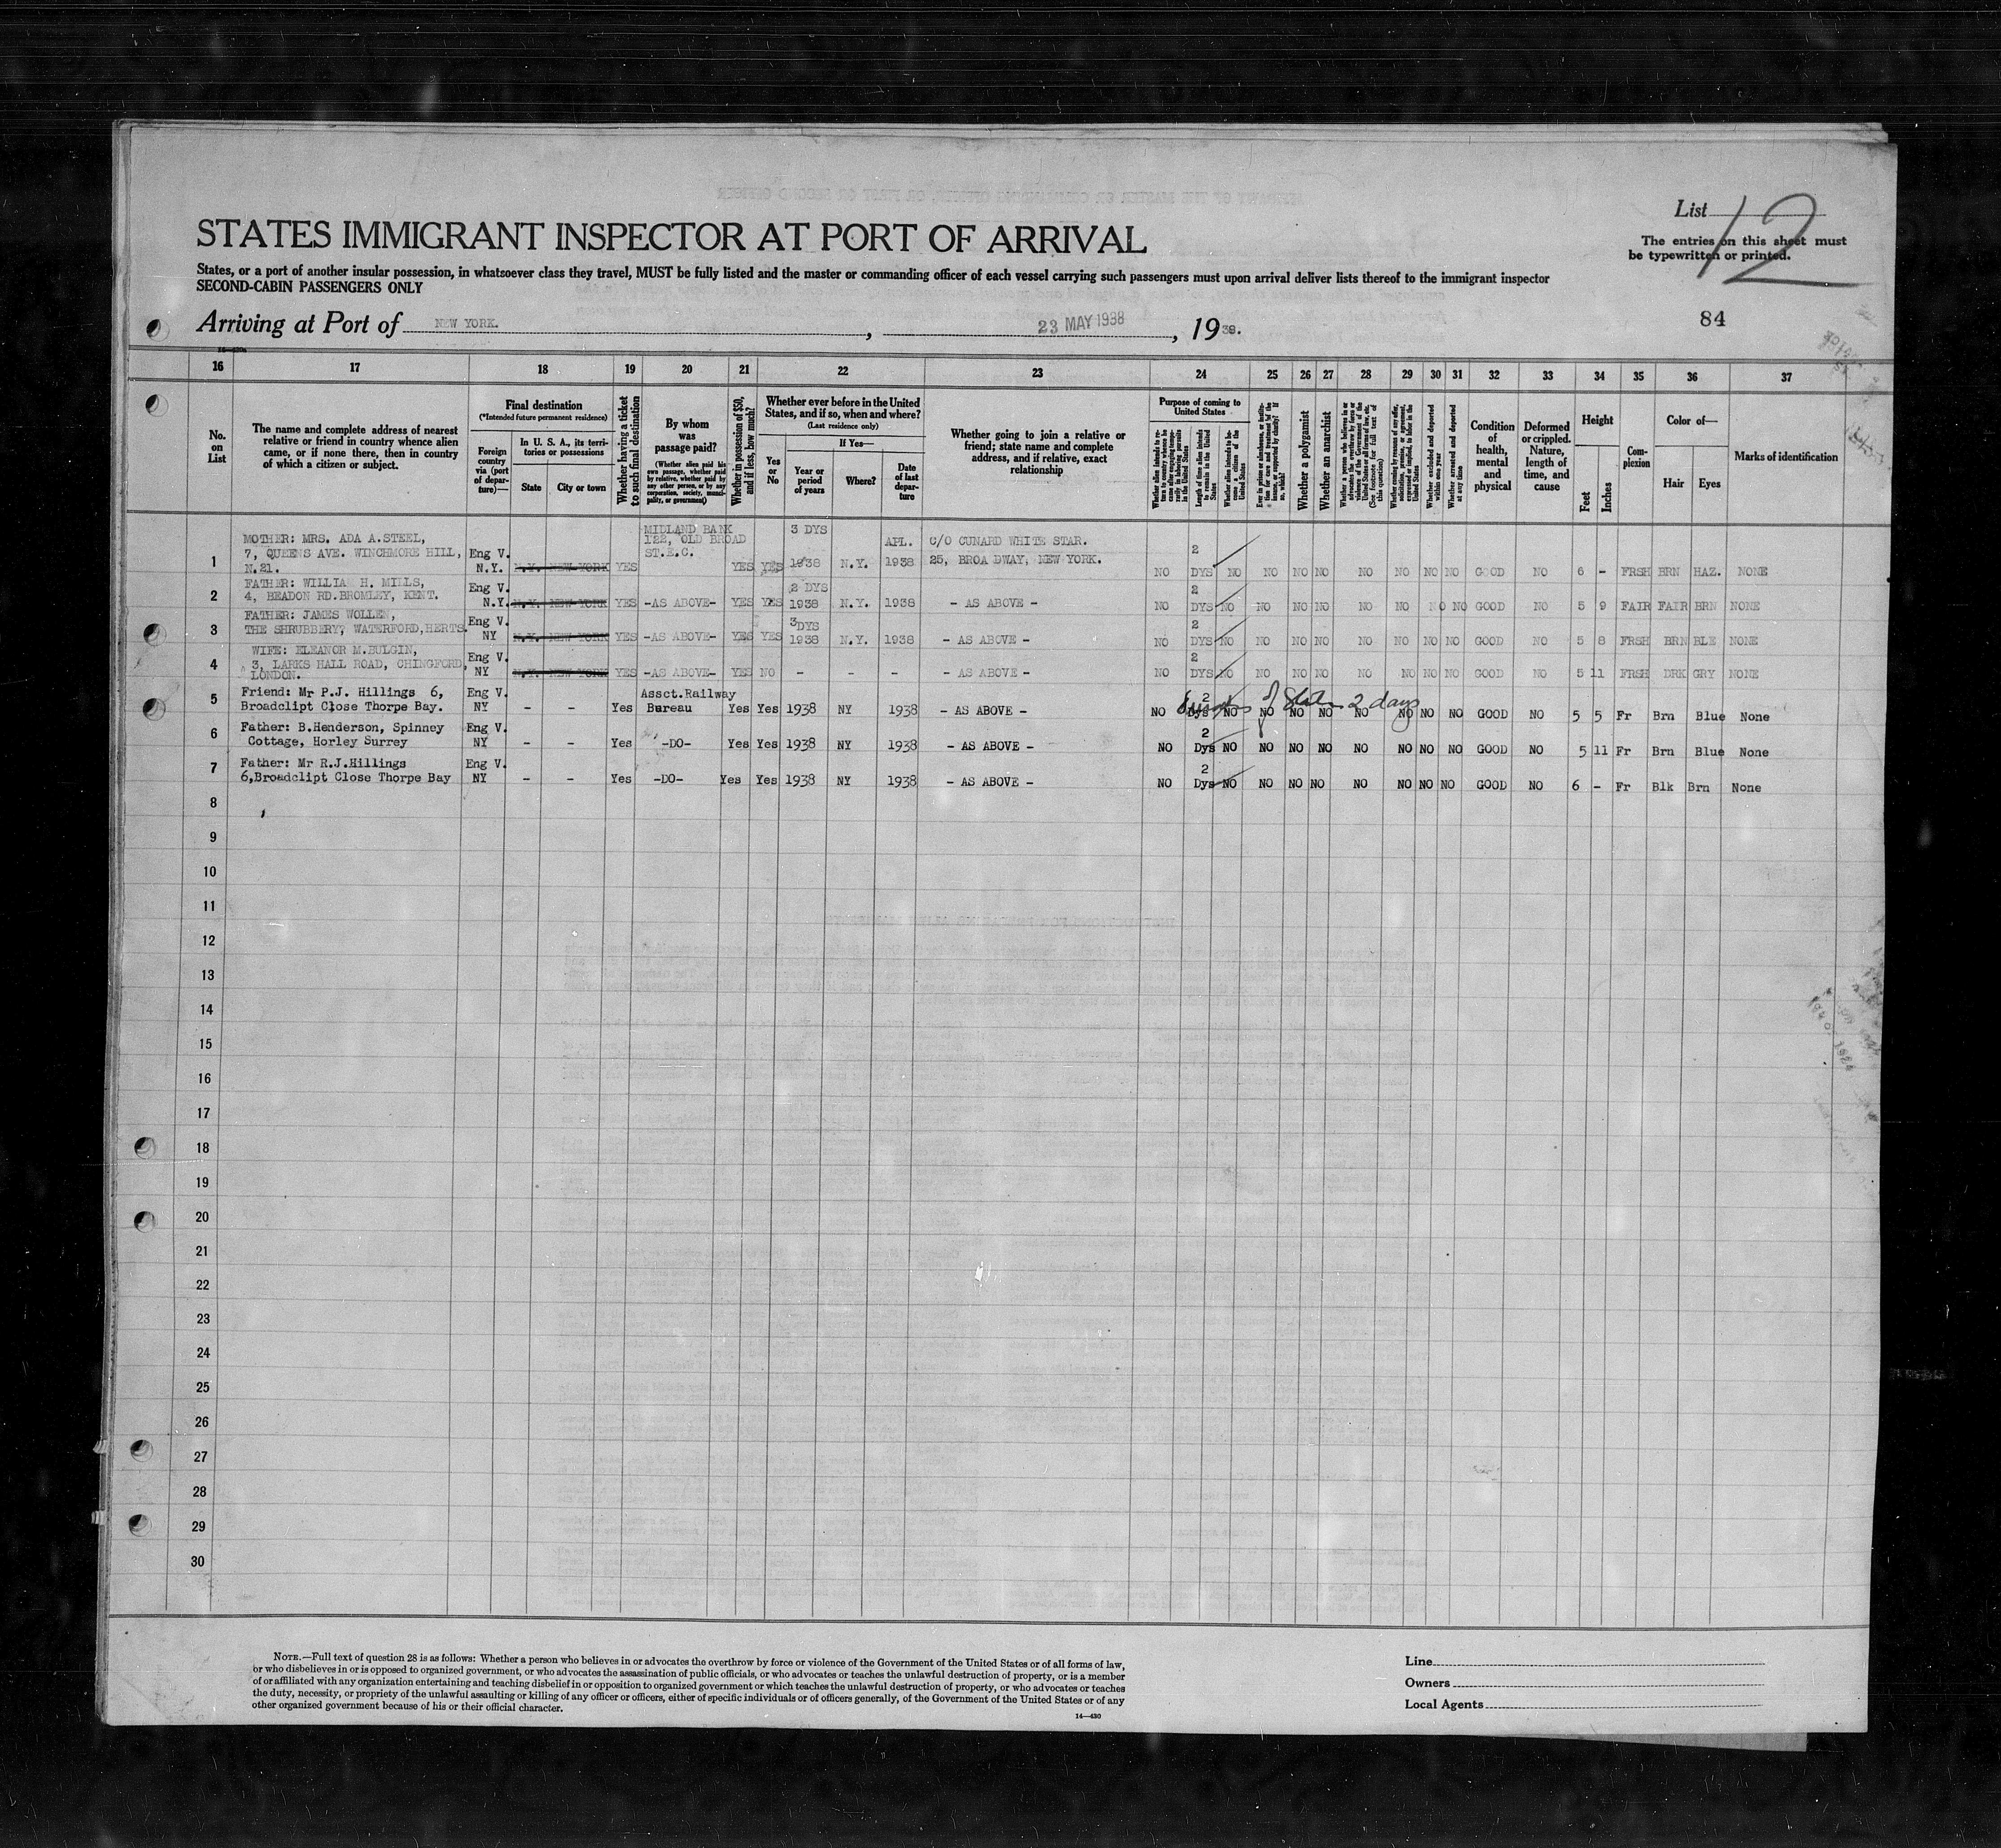 List 12
STATES IMMIGRANT INSPECTOR AT PORT OF ARRIVAL
The entries on this sheet must
be typewritten or printed.
States, or a port of another insular possession, in whatsoever class they travel, MUST be fully listed and the master or commanding officer of each vessel carrying such passengers must upon arrival deliver lists thereof to the immigrant inspector
SECOND-CABIN PASSENGERS ONLY
Arriving at Port of NEW YORK. , 23 MAY 1938 , 1938.
84
16 17 18 19 20 21 22 23 24 25 26 27 28 29 30 31 32 33 34 35 36 37
No. on List
The name and complete address of nearest
relative or friend in country whence alien
came, or if none there, then in country
of which a citizen or subject.
Final destination
(*Intended future permanent residence)
Foreign
country
via (port
of depar-
ture)—
In U. S. A., its terri-
tories or possessions
State City or town
Whether having a ticket
to such final destination
By whom
was
passage paid?
(Whether alien paid his
own passage, whether paid
by relative, whether paid by
any other person, or by any
corporation, society, munici-
pality, or government)
Whether in possession of $50,
and if less, how much?
Whether ever before in the United
States, and if so, when and where?
(Last residence only)
Yes
or
No
If Yes—
Year or
period
of years
Where?
Date
of last
depar-
ture
Whether going to join a relative or
friend; state name and complete
address, and if relative, exact
relationship
Purpose of coming to
United States
Length of time alien intends
to remain in the United
States
Whether alien intends to be-
come a citizen of the
United States
Whether a polygamist
Whether an anarchist
Whether excluded and deported
within one year
Whether arrested and deported
at any time
Condition
of
health,
mental
and
physical
Deformed
or crippled.
Nature,
length of
time, and
cause
Height
Feet
Inches
Com-
plexion
Color of—
Hair Eyes
Marks of identification
MIDLAND BANK 3 DYS
MOTHER: MRS. ADA A.STEEL, 122, OLD BROAD APL. C/O CUNARD WHITE STAR.
7, QUEENS AVE. WINCHMORE HILL, Eng V. ST.E.C. 2
1 N.21. N.Y. N.Y. NEW YORK YES YES YES 1938 N.Y. 1938 25, BROA DWAY, NEW YORK. NO DYS NO NO NO NO NO NO NO NO GOOD NO 6 - FRSH BRN HAZ. NONE
FATHER: WILLIA H. MILLS, Eng V. 2 DYS 2
2 4, BEADON RD.BROMLEY, KENT. N.Y. N.Y. NEW YORK YES -AS ABOVE- YES YES 1938 N.Y. 1938 - AS ABOVE - NO DYS NO NO NO NO NO NO NO NO GOOD NO 5 9 FAIR FAIR BRN NONE
FATHER: JAMES WOLLEN, Eng V. 3DYS 2
3 THE SHRUBBERY, WATERFORD,HERTS. NY N.Y. NEW YORK YES -AS ABOVE- YES YES 1938 N.Y. 1938 - AS ABOVE - NO DYS NO NO NO NO NO NO NO NO GOOD NO 5 8 FRSH BRN BLE NONE
WIFE: ELEANOR M.BULGIN, Eng V. 2
4 3, LARKS HALL ROAD, CHINGFORD, NY N.Y. NEW YORK YES -AS ABOVE- YES NO - - - - AS ABOVE - NO DYS NO NO NO NO NO NO NO NO GOOD NO 5 11 FRSH DRK GRY NONE
LONDON.
Friend: Mr P.J. Hillings 6, Eng V. Assct.Railway 2 2 days
5 Broadclipt Close Thorpe Bay. NY - - Yes Bureau Yes Yes 1938 NY 1938 - AS ABOVE - NO Dys NO NO NO NO NO NO NO NO GOOD NO 5 5 Fr Brn Blue None
Father: B.Henderson, Spinney Eng V. 2
6 Cottage, Horley Surrey NY - - Yes -DO- Yes Yes 1938 NY 1938 - AS ABOVE - NO Dys NO NO NO NO NO NO NO NO GOOD NO 5 11 Fr Brn Blue None
Father: Mr R.J.Hillings Eng V. 2
7 6,Broadclipt Close Thorpe Bay NY - - Yes -DO- Yes Yes 1938 NY 1938 - AS ABOVE - NO Dys NO NO NO NO NO NO NO NO GOOD NO 6 - Fr Blk Brn None
8
9
10
11
12
13
14
15
16
17
18
19
20
21
22
23
24
25
26
27
28
29
30
NOTE.—Full text of question 28 is as follows: Whether a person who believes in or advocates the overthrow by force or violence of the Government of the United States or of all forms of law,
or who disbelieves in or is opposed to organized government, or who advocates the assassination of public officials, or who advocates or teaches the unlawful destruction of property, or is a member
of or affiliated with any organization entertaining and teaching disbelief in or opposition to organized government or which teaches the unlawful destruction of property, or who advocates or teaches
the duty, necessity, or propriety of the unlawful assaulting or killing of any officer or officers, either of specific individuals or of officers generally, of the Government of the United States or of any
other organized government because of his or their official character.
14—430
Line
Owners
Local Agents